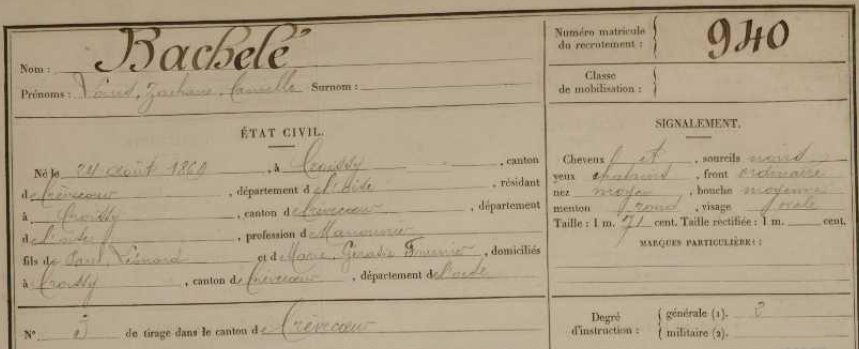 Nom : Bachelé
Prénoms : Zacharie, Camille Surnom :
Numéro matricule
du recrutement : 940
Classe
de mobilisation :
ÉTAT CIVIL.
Né le 24 août 1860, à Croissy, canton
de Crèvecoeur, département de l'Oise, résidant
à Croissy, canton de Crèvecoeur, département
de l'Oise, profession de Manouvrier
fils de Paul, Léonard et de Marie, Fournier, domiciliés
à Croissy, canton de Crèvecoeur, département de l'oise
N° 5 de tirage dans le canton de Crèvecoeur
SIGNALEMENT.
Cheveux et, sourcils noirs
yeux chatains, front ordinaire
nez moyen, bouche moyenne
menton rond, visage ovale
Taille : 1 m. 71 cent. Taille rectifiée : 1 m. cent.
MARQUES PARTICULIÈRES :
Degré
d'instruction :
générale (1). 2
militaire (2).